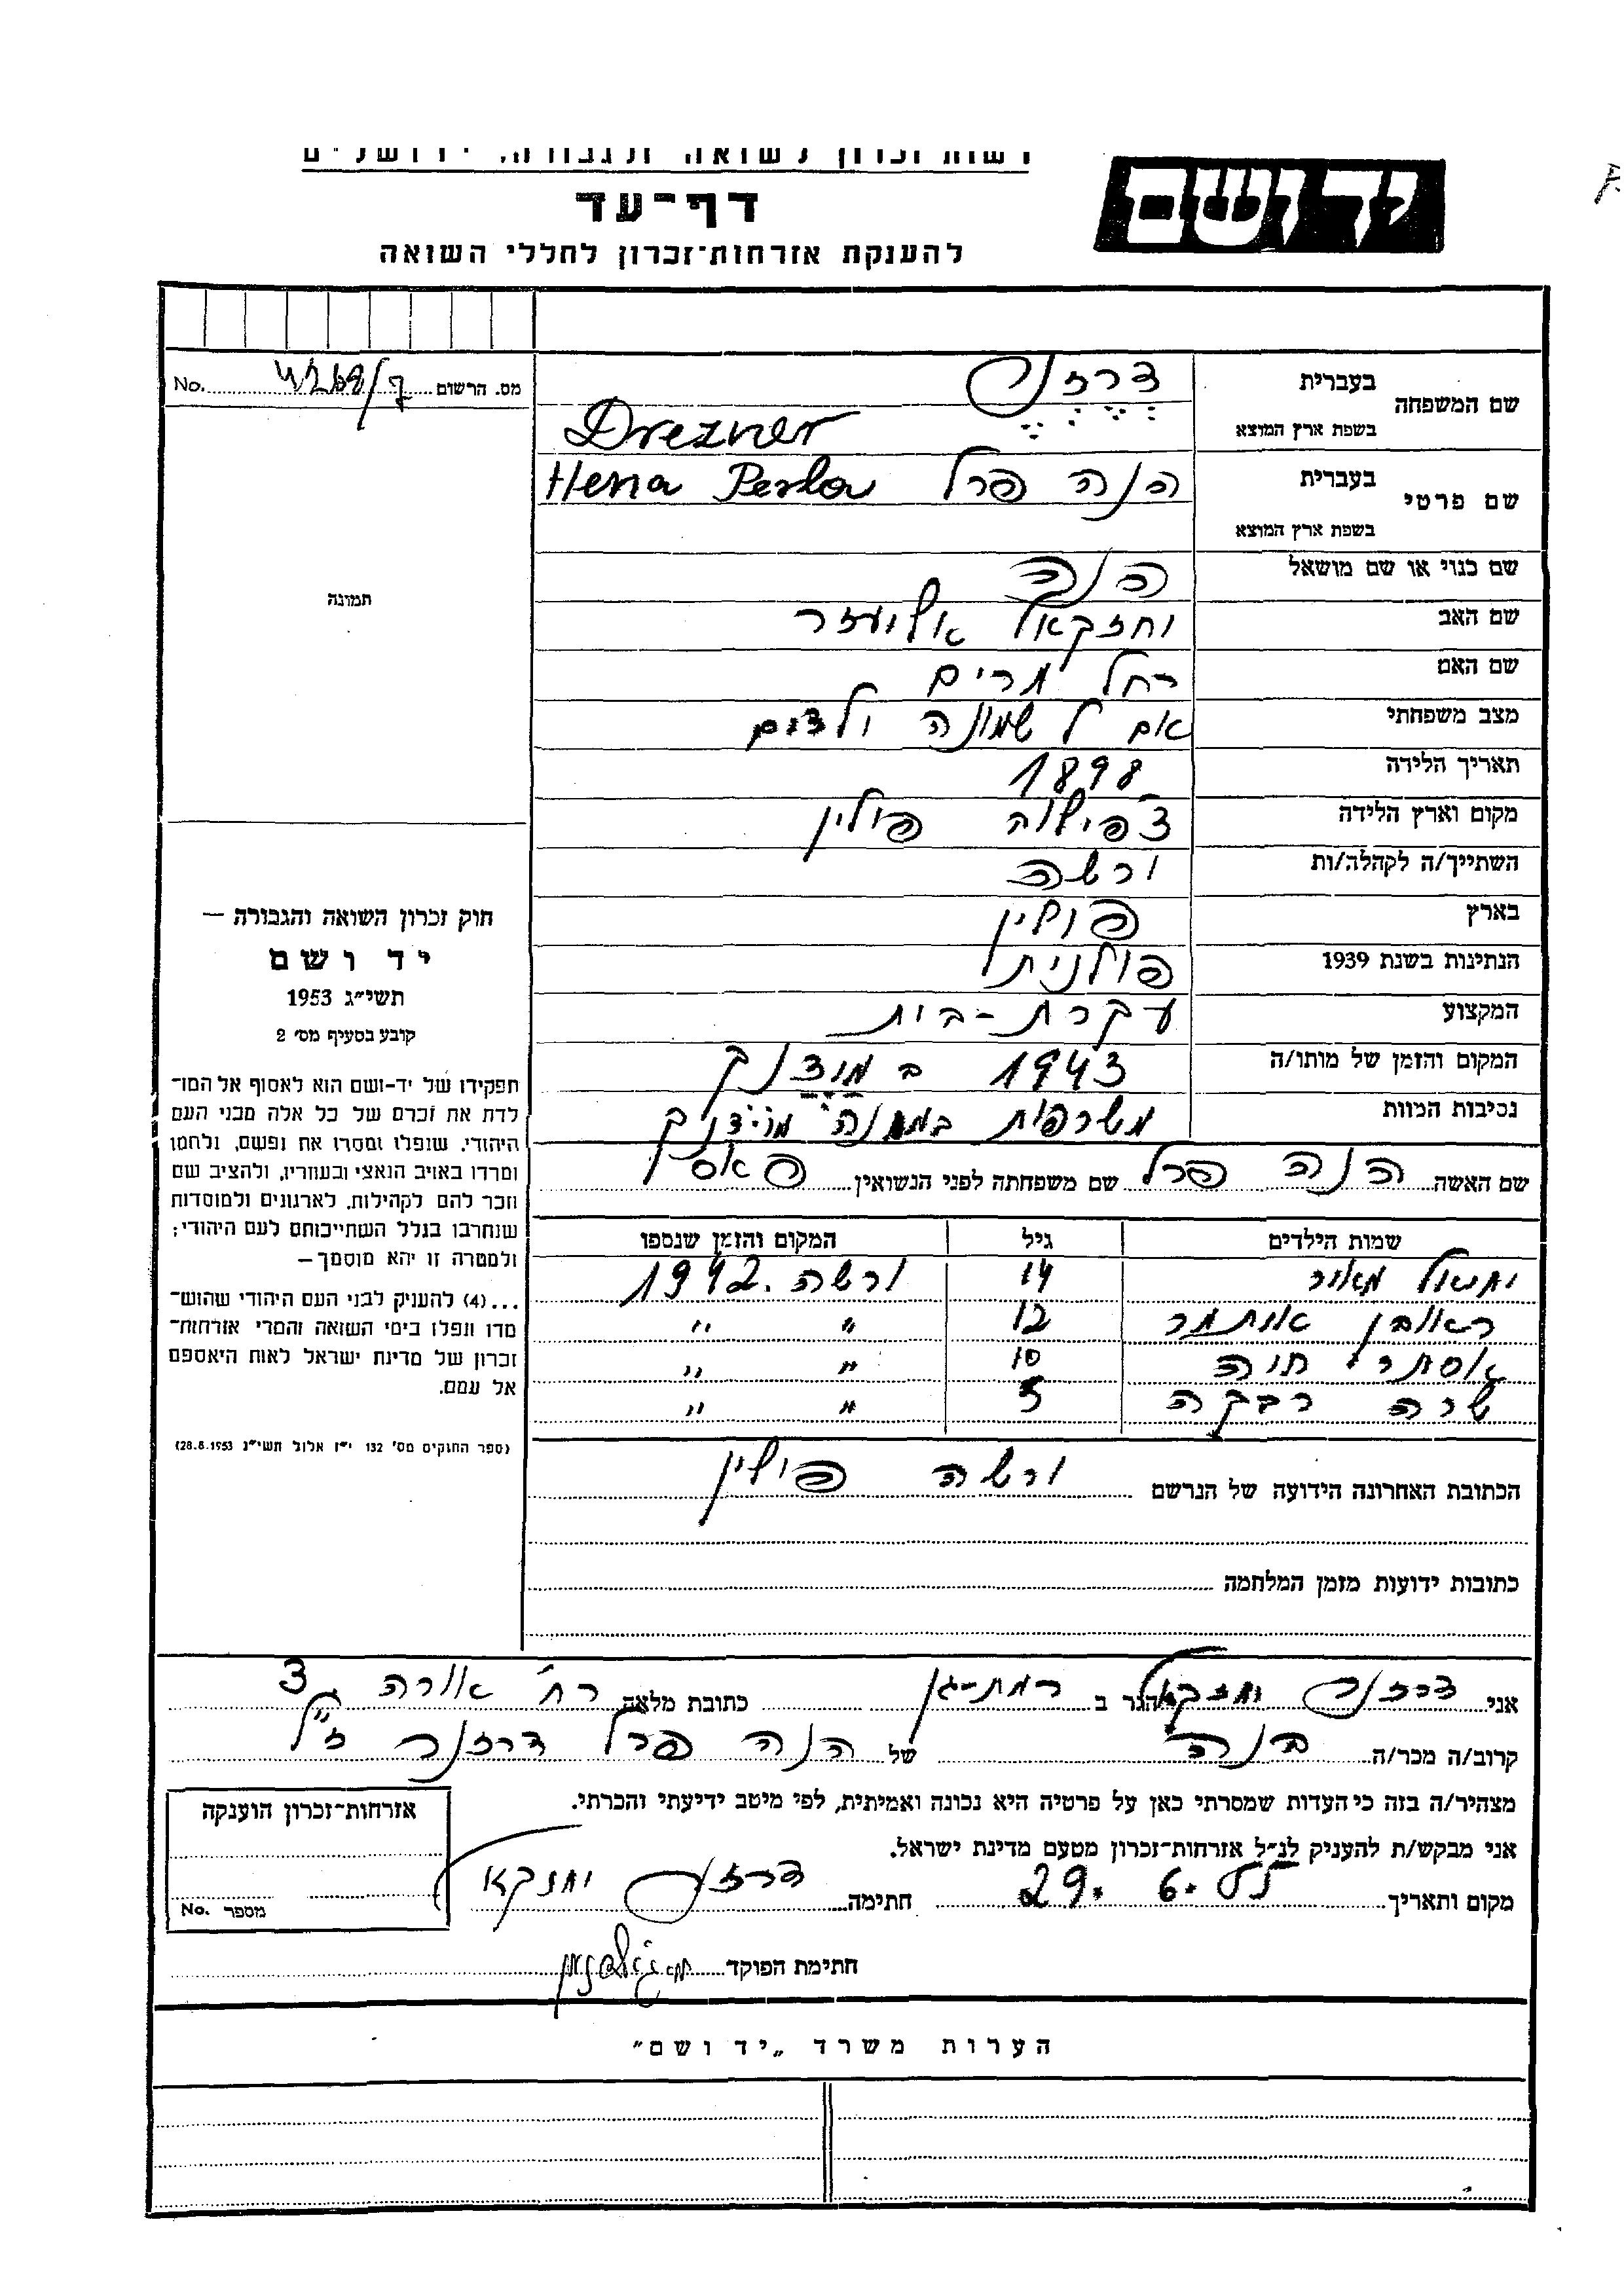 רשות זכרון לשואה ולגבורה, ירושלים
יד ושם
דף-עד
להענקת אזרחות-זכרון לחללי השואה
מס. הרשום 4268/7 No.
שם המשפחה
בעברית דרזנר
בשפת ארץ המוצא Drezner
שם פרטי
בעברית הנה פרל Hena Perla
בשפת ארץ המוצא
שם כנוי או שם מושאל הנה
שם האב יחזקאל אליעזר
שם האם רחל מרים
מצב משפחתי אם ל שמונה ילדים
תאריך הלידה 1898
מקום וארץ הלידה פולין
השתייך/ה לקהלה/ות ורשה
בארץ פולין
הנתינות בשנת 1939 פולנית
המקצוע עקרת-בית
המקום והזמן של מותו/ה 1943 ב
נסיבות המוות משרפות במחנה מוידניק
שם האשה הנה פרל שם משפחתה לפני הנשואין
שמות הילדים גיל המקום והזמן שנספו
יחיאל מאיר 14 ורשה 1942
ראובן איתמר 12 " "
אסתר חוה 10 " "
שרה רבקה 5 " "
הכתובת האחרונה הידועה של הנרשם ורשה פולין
כתובות ידועות מזמן המלחמה
תמונה
חוק זכרון השואה והגבורה —
יד ושם
תשי״ג 1953
קובע בסעיף מס׳ 2
תפקידו של יד-ושם הוא לאסוף אל המו־
לדת את זכרם של כל אלה מבני העם
היהודי, שנפלו ומסרו את נפשם, נלחמו
ומרדו באויב הנאצי ובעוזריו, ולהציב שם
וזכר להם לקהילות, לארגונים ולמוסדות
שנחרבו בגלל השתייכותם לעם היהודי;
ולמטרה זו יהא מוסמך—
...(4) להעניק לבני העם היהודי שהוש־
מדו ונפלו בימי השואה והמרי אזרחות־
זכרון של מדינת ישראל לאות היאספם
אל עמם.
(ספר החוקים מס׳ 132 י״ז אלול תשי״ג 28.8.1953)
אני דרזנר יחזקאל הגר ב רמת-גן כתובת מלאה רח׳ אורה 3
קרוב/ה מכר/ה בנה של הנה פרל דרזנר ז״ל
מצהיר/ה בזה כי העדות שמסרתי כאן על פרטיה היא נכונה ואמיתית, לפי מיטב ידיעתי והכרתי.
אני מבקש/ת להעניק לנ״ל אזרחות-זכרון מטעם מדינת ישראל.
מקום ותאריך 29.6.55 חתימה דרזנר יחזקאל
חתימת הפוקד
אזרחות-זכרון הוענקה
מספר No.
הערות משרד „יד ושם"